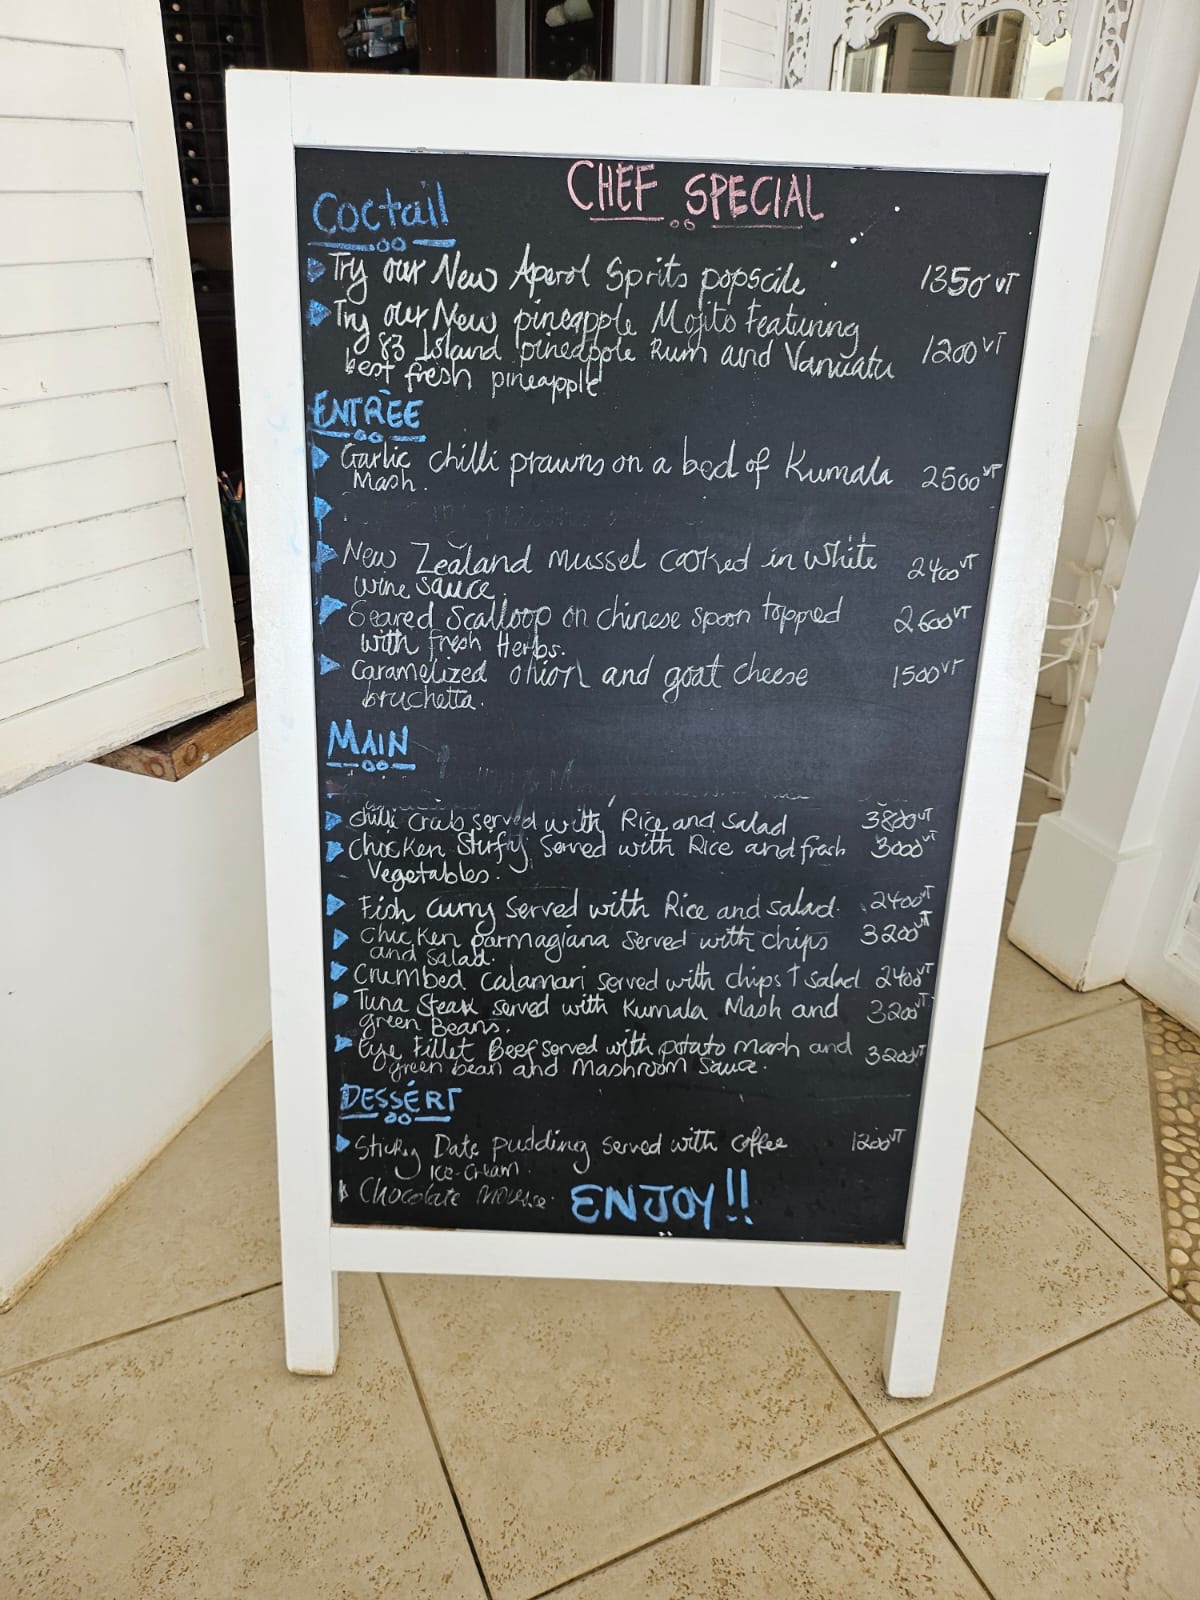 CHEF SPECIAL
Coctail
Try our New Aperol Sprits popscile 1350 VT
Try our New pineapple Mojito Featuring
83 Island pineapple Rum and Vanuatu 1200 VT
best fresh pineapple
ENTRÈE
Garlic chilli prawns on a bed of Kumala 2500 VT
Mash.
New Zealand mussel cooked in white 2400 VT
wine sauce.
Seared Scalloop on chinese spoon topped 2600 VT
with fresh Herbs.
Caramelized onion and goat cheese 1500 VT
bruchetta.
MAIN
chilli crab served with Rice and salad 3800 VT
Chicken Stirfry Served with Rice and fresh 3000 VT
Vegetables.
Fish curry Served with Rice and salad. 2400 VT
Chicken parmagiana Served with chips 3200 VT
and salad.
Crumbed calamari served with chips + salad 2400 VT
Tuna Steak served with Kumala Mash and 3200 VT
green Beans.
Eye Fillet Beef served with potato mash and 3200 VT
green bean and Mashroom Sauce.
DESSÉRT
Sticky Date pudding served with coffee 1200 VT
Ice-Cream.
Chocolate Mousse.
ENJOY!!